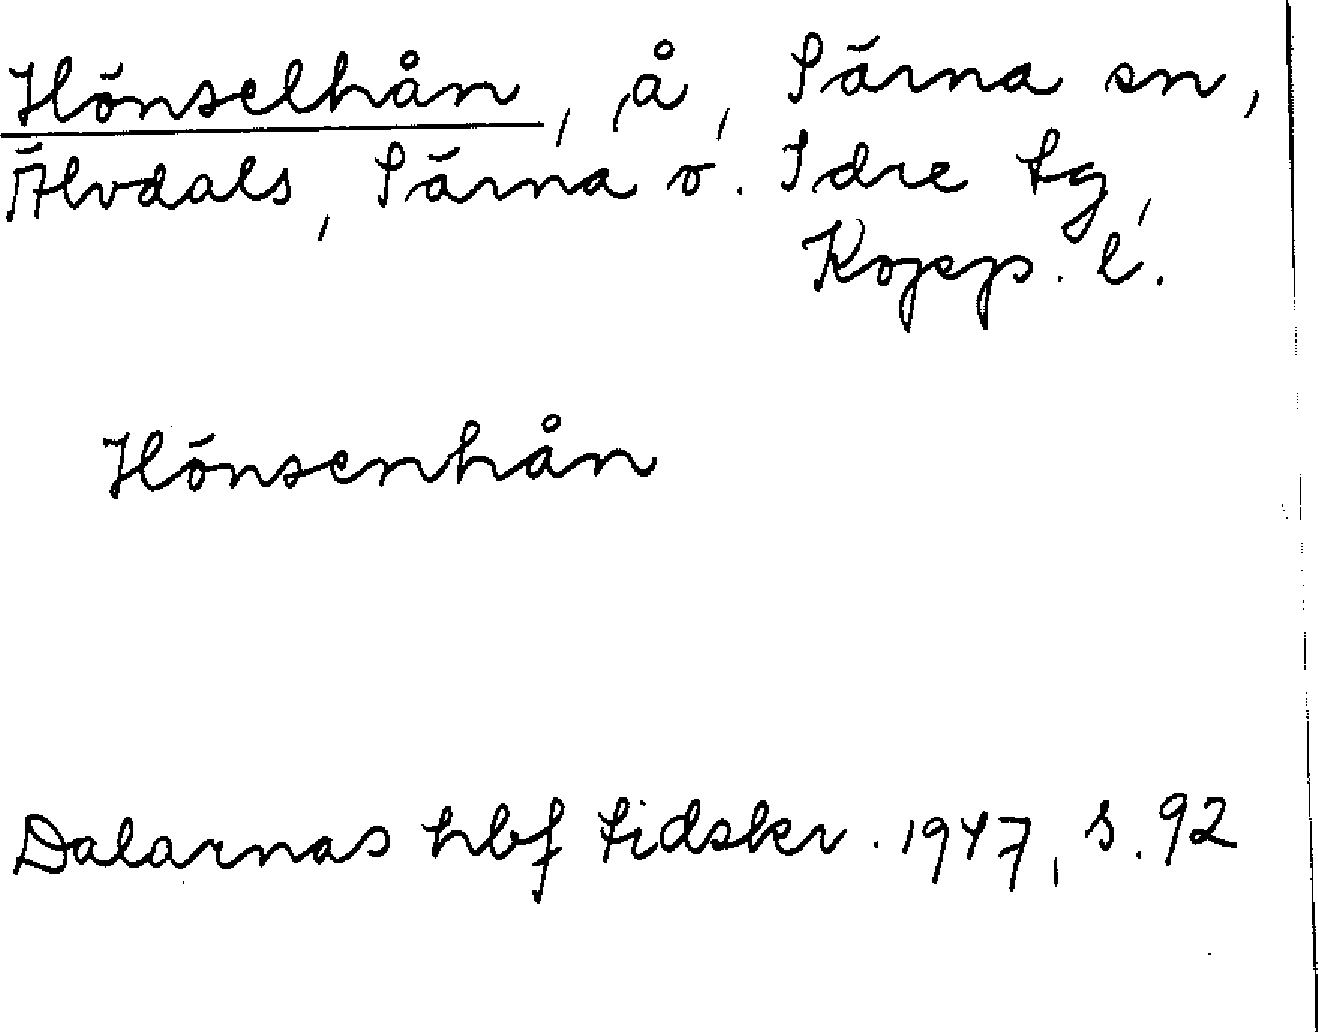 Hönselhån, å, Särna sn,
Älvdals, Särna o. Idre tg,
Kopp. l.
Hönsenhån
Dalarnas hbf tidskr. 1947, s. 92